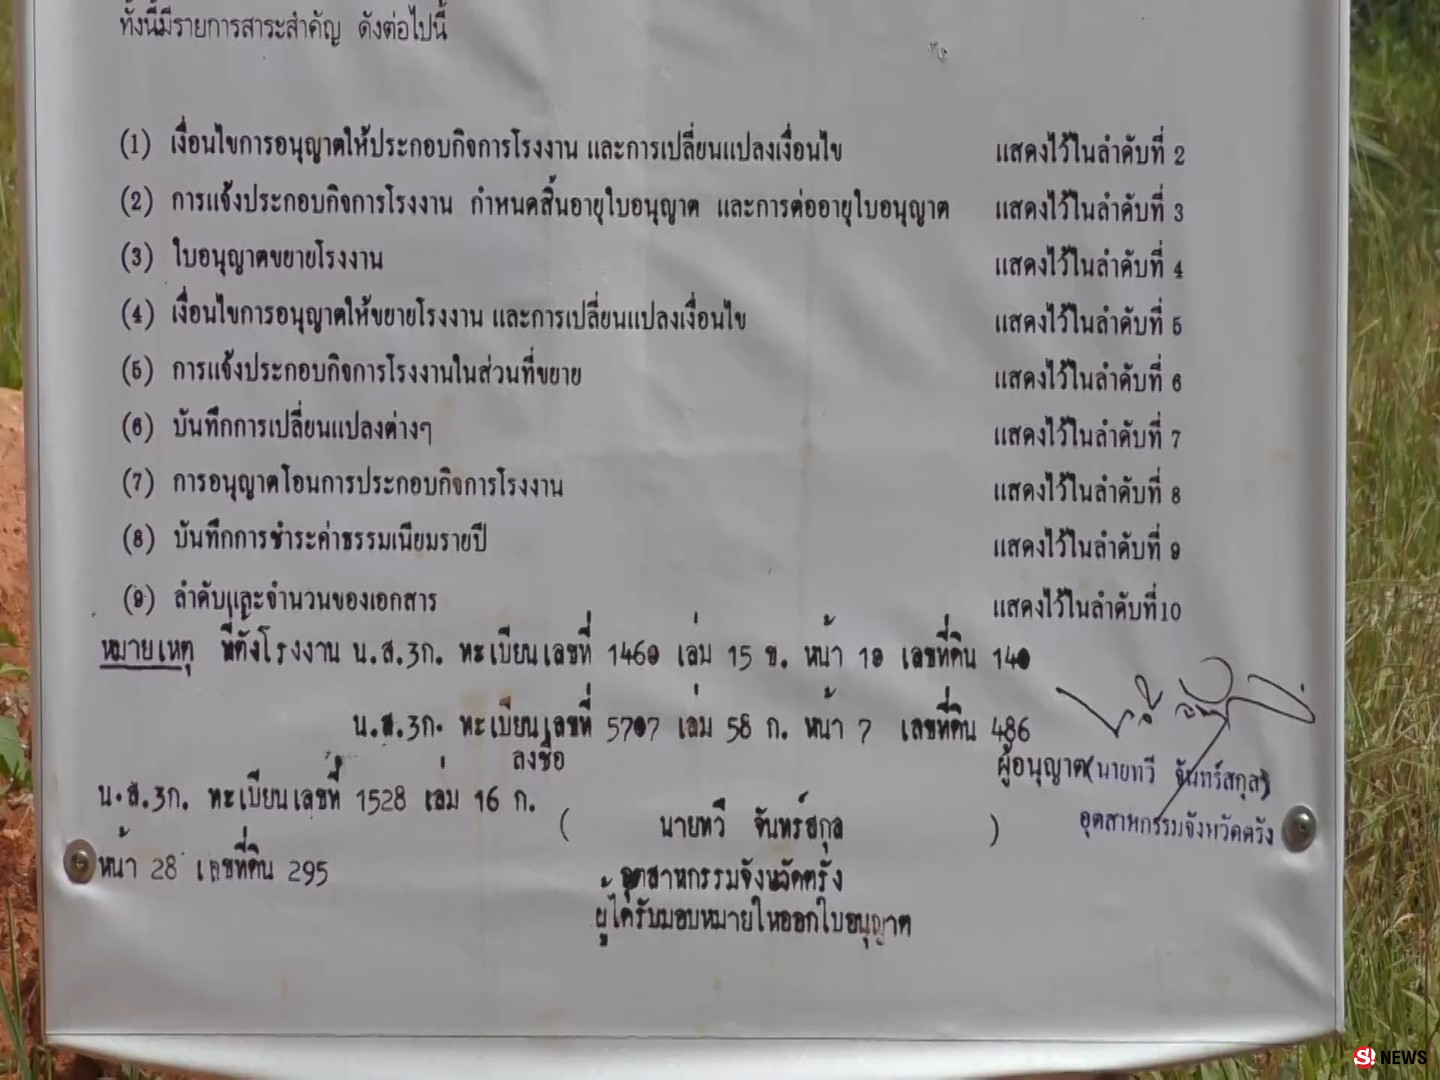 ทั้งนี้มีรายการสาระสำคัญ ดังต่อไปนี้
(1) เงื่อนไขการอนุญาตให้ประกอบกิจการโรงงาน และการเปลี่ยนแปลงเงื่อนไข แสดงไว้ในลำดับที่ 2
(2) การแจ้งประกอบกิจการโรงงาน กำหนดสิ้นอายุใบอนุญาต และการต่ออายุใบอนุญาต แสดงไว้ในลำดับที่ 3
(3) ใบอนุญาตขยายโรงงาน แสดงไว้ในลำดับที่ 4
(4) เงื่อนไขการอนุญาตให้ขยายโรงงาน และการเปลี่ยนแปลงเงื่อนไข แสดงไว้ในลำดับที่ 5
(5) การแจ้งประกอบกิจการโรงงานในส่วนที่ขยาย แสดงไว้ในลำดับที่ 6
(6) บันทึกการเปลี่ยนแปลงต่างๆ แสดงไว้ในลำดับที่ 7
(7) การอนุญาตโอนการประกอบกิจการโรงงาน แสดงไว้ในลำดับที่ 8
(8) บันทึกการชำระค่าธรรมเนียมรายปี แสดงไว้ในลำดับที่ 9
(9) ลำดับและจำนวนของเอกสาร แสดงไว้ในลำดับที่10
หมายเหตุ ที่ตั้งโรงงาน น.ส.3ก. ทะเบียนเลขที่ 1460 เล่ม 15 ข. หน้า 10 เลขที่ดิน 140
น.ส.3ก. ทะเบียนเลขที่ 5707 เล่ม 58 ก. หน้า 7 เลขที่ดิน 486
ลงชื่อ ผู้อนุญาต (นายทวี จันทร์สกุล)
น.ส.3ก. ทะเบียนเลขที่ 1528 เล่ม 16 ก.
( นายทวี จันทร์สกุล )
อุตสาหกรรมจังหวัดตรัง
หน้า 28 เลขที่ดิน 295
อุตสาหกรรมจังหวัดตรัง
ผู้ได้รับมอบหมายให้ออกใบอนุญาต
S! NEWS